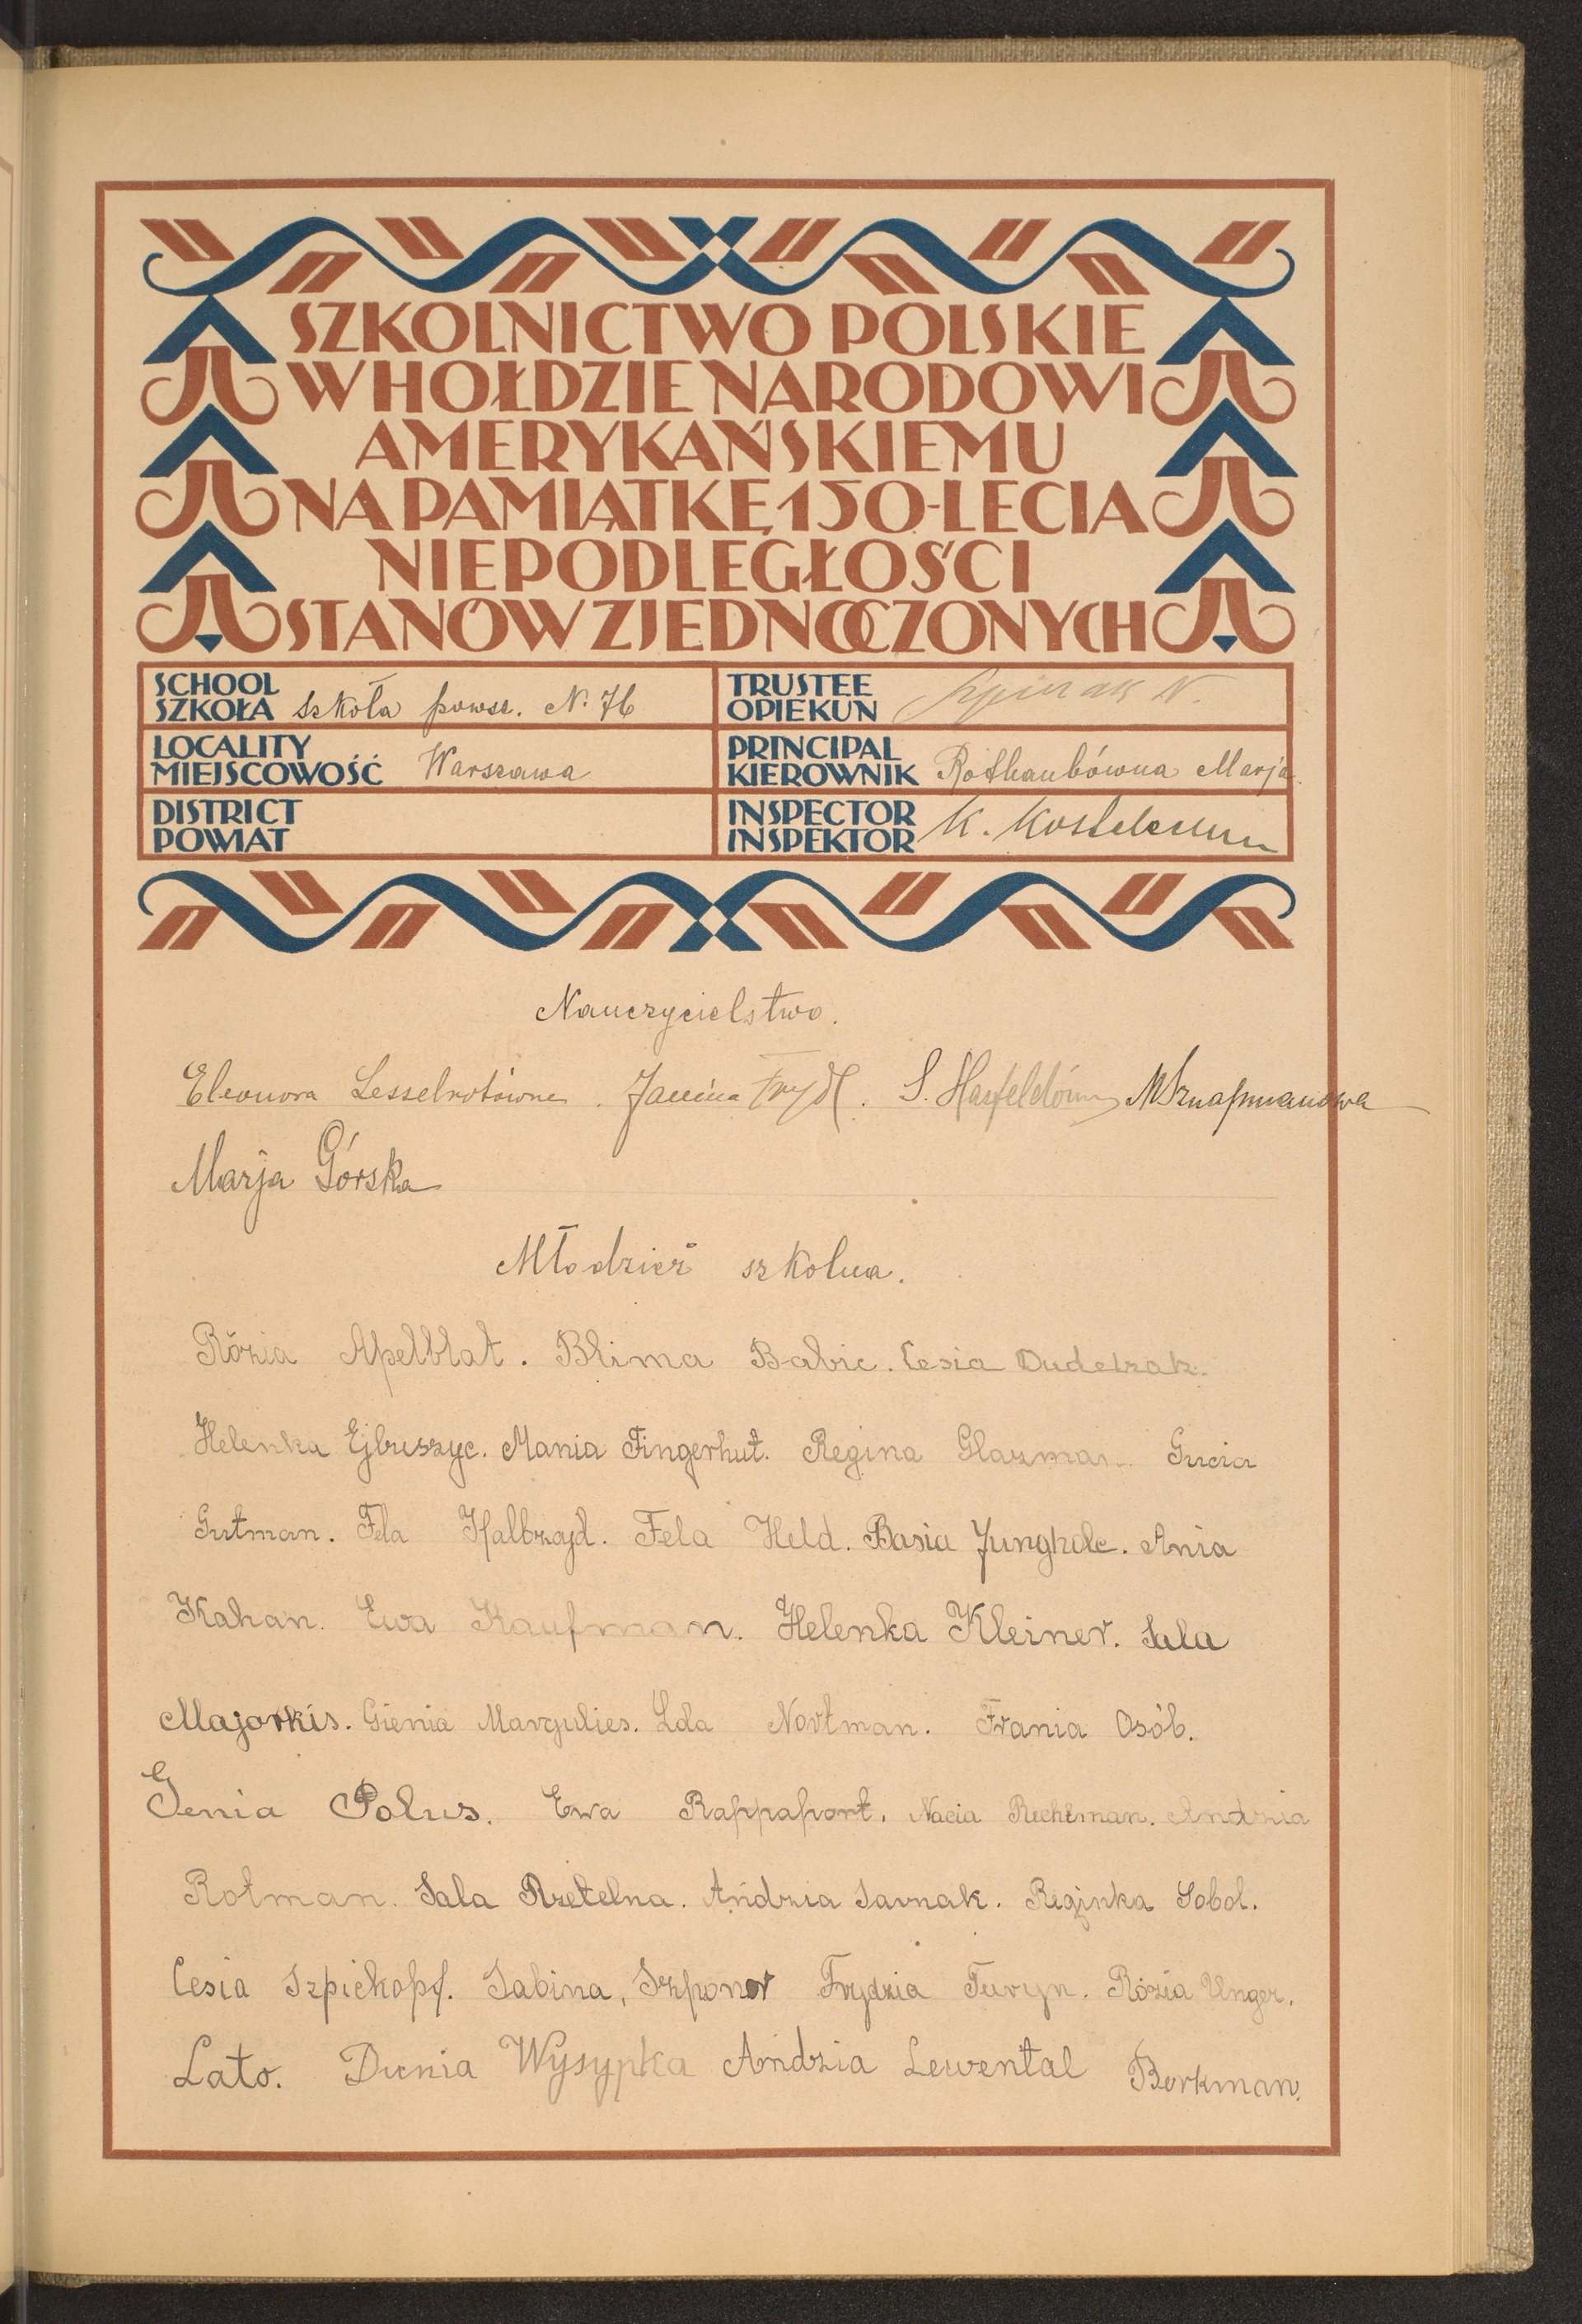 SZKOLNICTWO POLSKIE
W HOŁDZIE NARODOWI
AMERYKAŃSKIEMU
NA PAMIĄTKĘ 150-LECIA
NIEPODLEGŁOŚCI
STANÓW ZJEDNOCZONYCH
SCHOOL
SZKOŁA Szkoła powsz. N. 76
TRUSTEE
OPIEKUN Szpirak N.
LOCALITY
MIEJSCOWOŚĆ Warszawa
PRINCIPAL
KIEROWNIK Rothaubówna Marja
DISTRICT
POWIAT
INSPECTOR
INSPEKTOR K.
Nauczycielstwo.
Eleonora Lesselrotówna. Janina Frydl. S. Hasfeldówna M Sznapmanowa
Marja Górska
Młodzież szkolna.
Rózia Apelblat. Blima Babic. Cesia Dudelzak.
Helenka Ejbuszyc. Mania Fingerhut. Regina Glazman. Gucia
Gutman. Fela Halbzajd. Fela Held. Basia Jungholc. Ania
Kahan. Ewa Kaufman. Helenka Kleiner. Sala
Majorkis. Gienia Margulies. Lda Nortman. Frania Osób.
Genia Polus. Ewa Rappaport. Nacia Rechtman. Andzia
Rotman. Sala Rzetelna. Ańdzia Sarnak. Reginka Sobol.
Cesia Szpickopf. Sabina, Szponor Frydzia Turyn. Rózia Unger.
Lato. Dunia Wysypka Ańdzia Lewental Berkman.